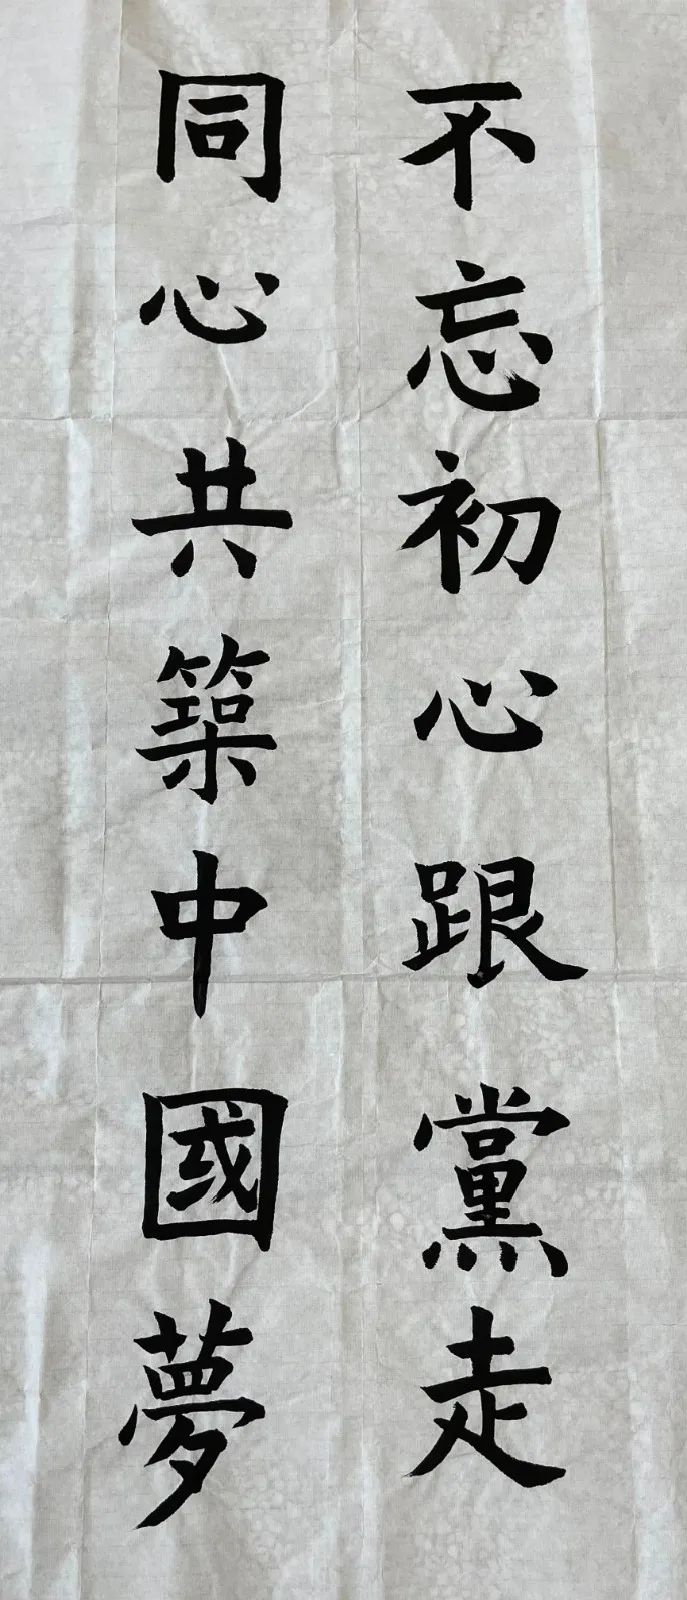 不忘初心跟黨走
同心共築中國夢